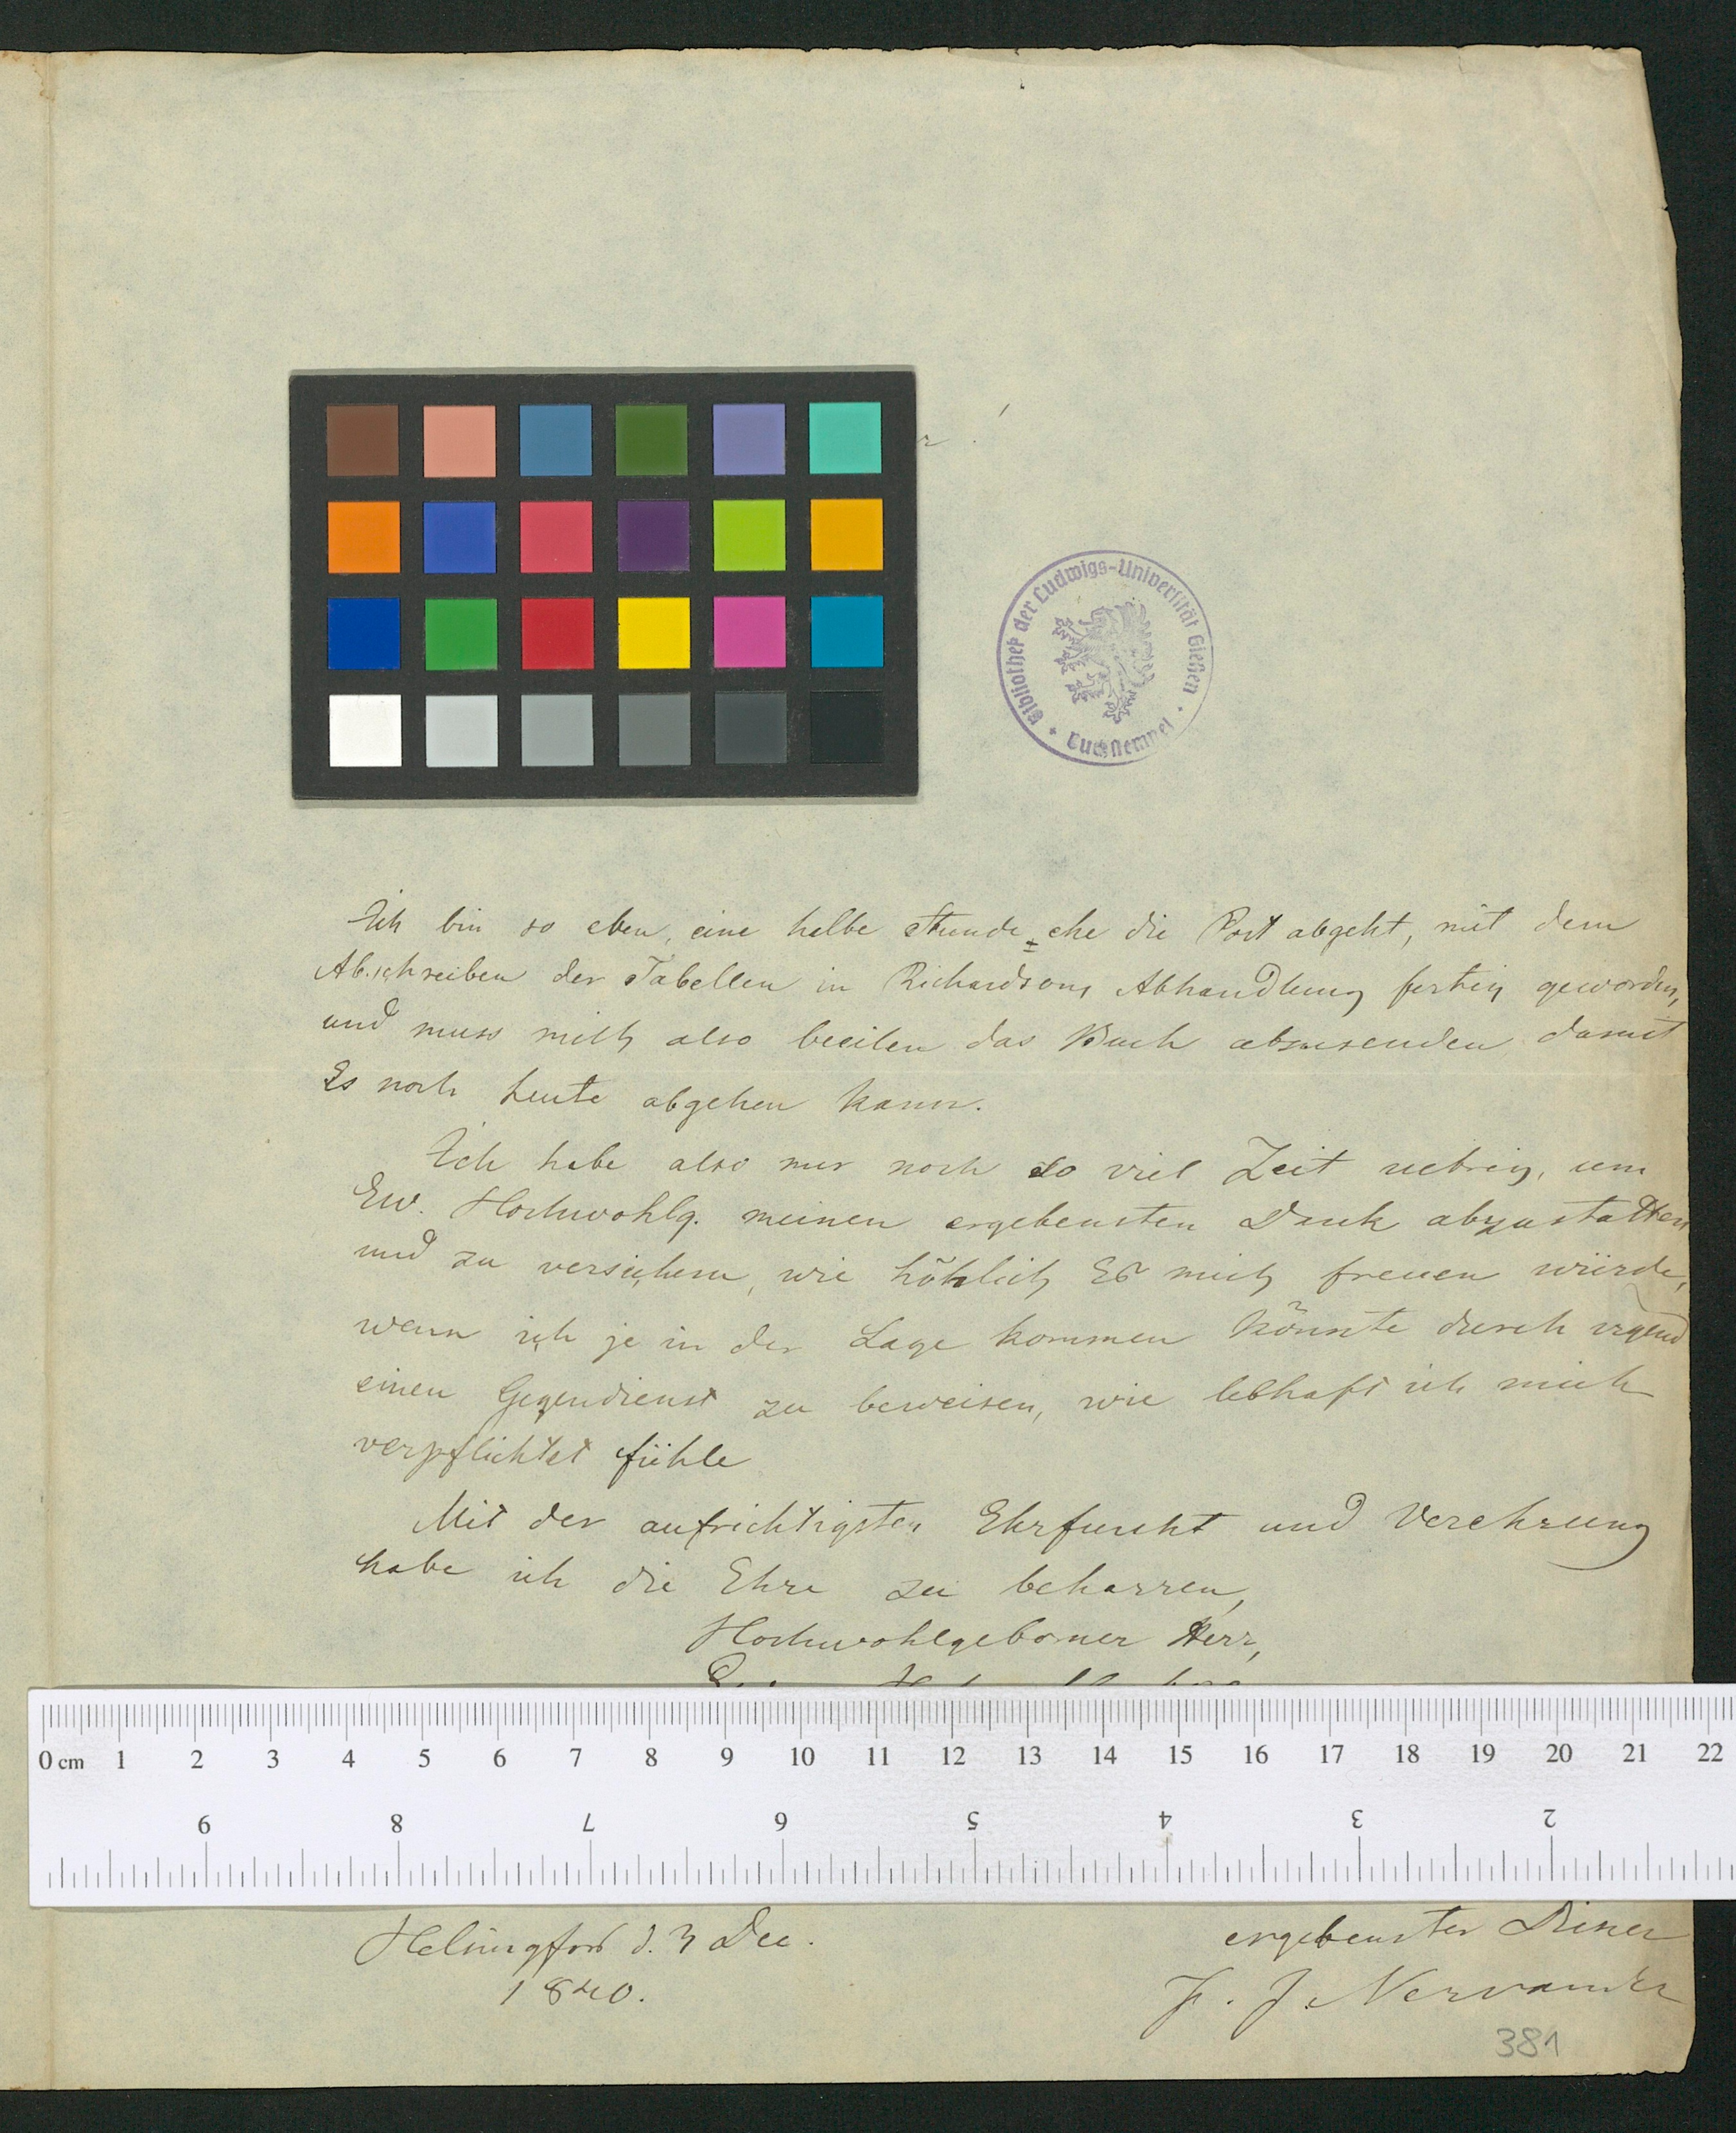 Bibliothek der Ludwigs-Universität Gießen
Ich bin so eben, eine halbe Stunde ehe die Post abgeht, mit dem
Abschreiben der Tabellen in Richardsons Abhandlung fertig geworden,
und muss mich also beeilen das Buch abzusenden damit
Es noch heute abgehen kann.
Ich habe also nur noch so viel Zeit uebrig, um
Ew. Hochwohlg. meinen ergebensten Dank abzustatten
und zu versichern, wie höhlich Es mich freuen würde,
wenn ich je in der Lage kommen könnte durch irgend
einen Gegendienst zu beweisen, wie lebhaft ich mich
verpflichtet fühle
Mit der aufrichtigsten Ehrfurcht und Verehrung
habe ich die Ehre zu beharren,
Hochwohlgeborner Herr,
0 cm 1 2 3 4 5 6 7 8 9 10 11 12 13 14 15 16 17 18 19 20 21 22
9 8 7 6 5 4 3 2
ergebenster Diener
Helsingfors d. 3 Dec.
1840.
J. J. Nervander
381